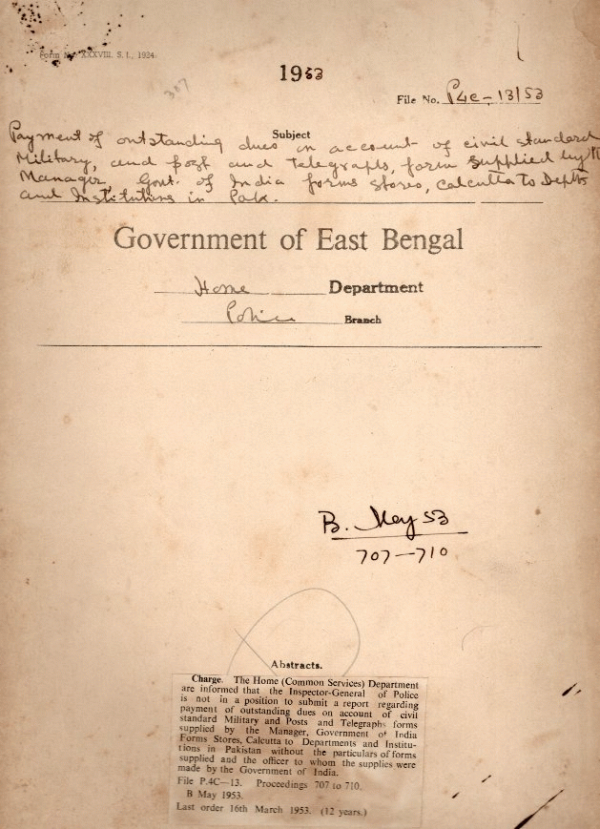 Form No. XXXVIII. S. I., 1924.
1953
307
File No. P4c-13/53
Subject
Payment of outstanding dues on account of civil standard
Military, and post and Telegraphs, form supplied by the
Manager Govt. of India forms stores, Calcutta to Deptts
and Institutions in Pak.
Government of East Bengal
Home Department
Police Branch
B. May 53
707-710
Abstracts.
Charge. The Home (Common Services) Department
are informed that the Inspector-General of Police
is not in a position to submit a report regarding
payment of outstanding dues on account of civil
standard Military and Posts and Telegraphs forms
supplied by the Manager, Government of India
Forms Stores, Calcutta to Departments and Institu-
tions in Pakistan without the particulars of forms
supplied and the officer to whom the supplies were
made by the Government of India.
File P.4C—13. Proceedings 707 to 710.
B May 1953.
Last order 16th March 1953. (12 years.)